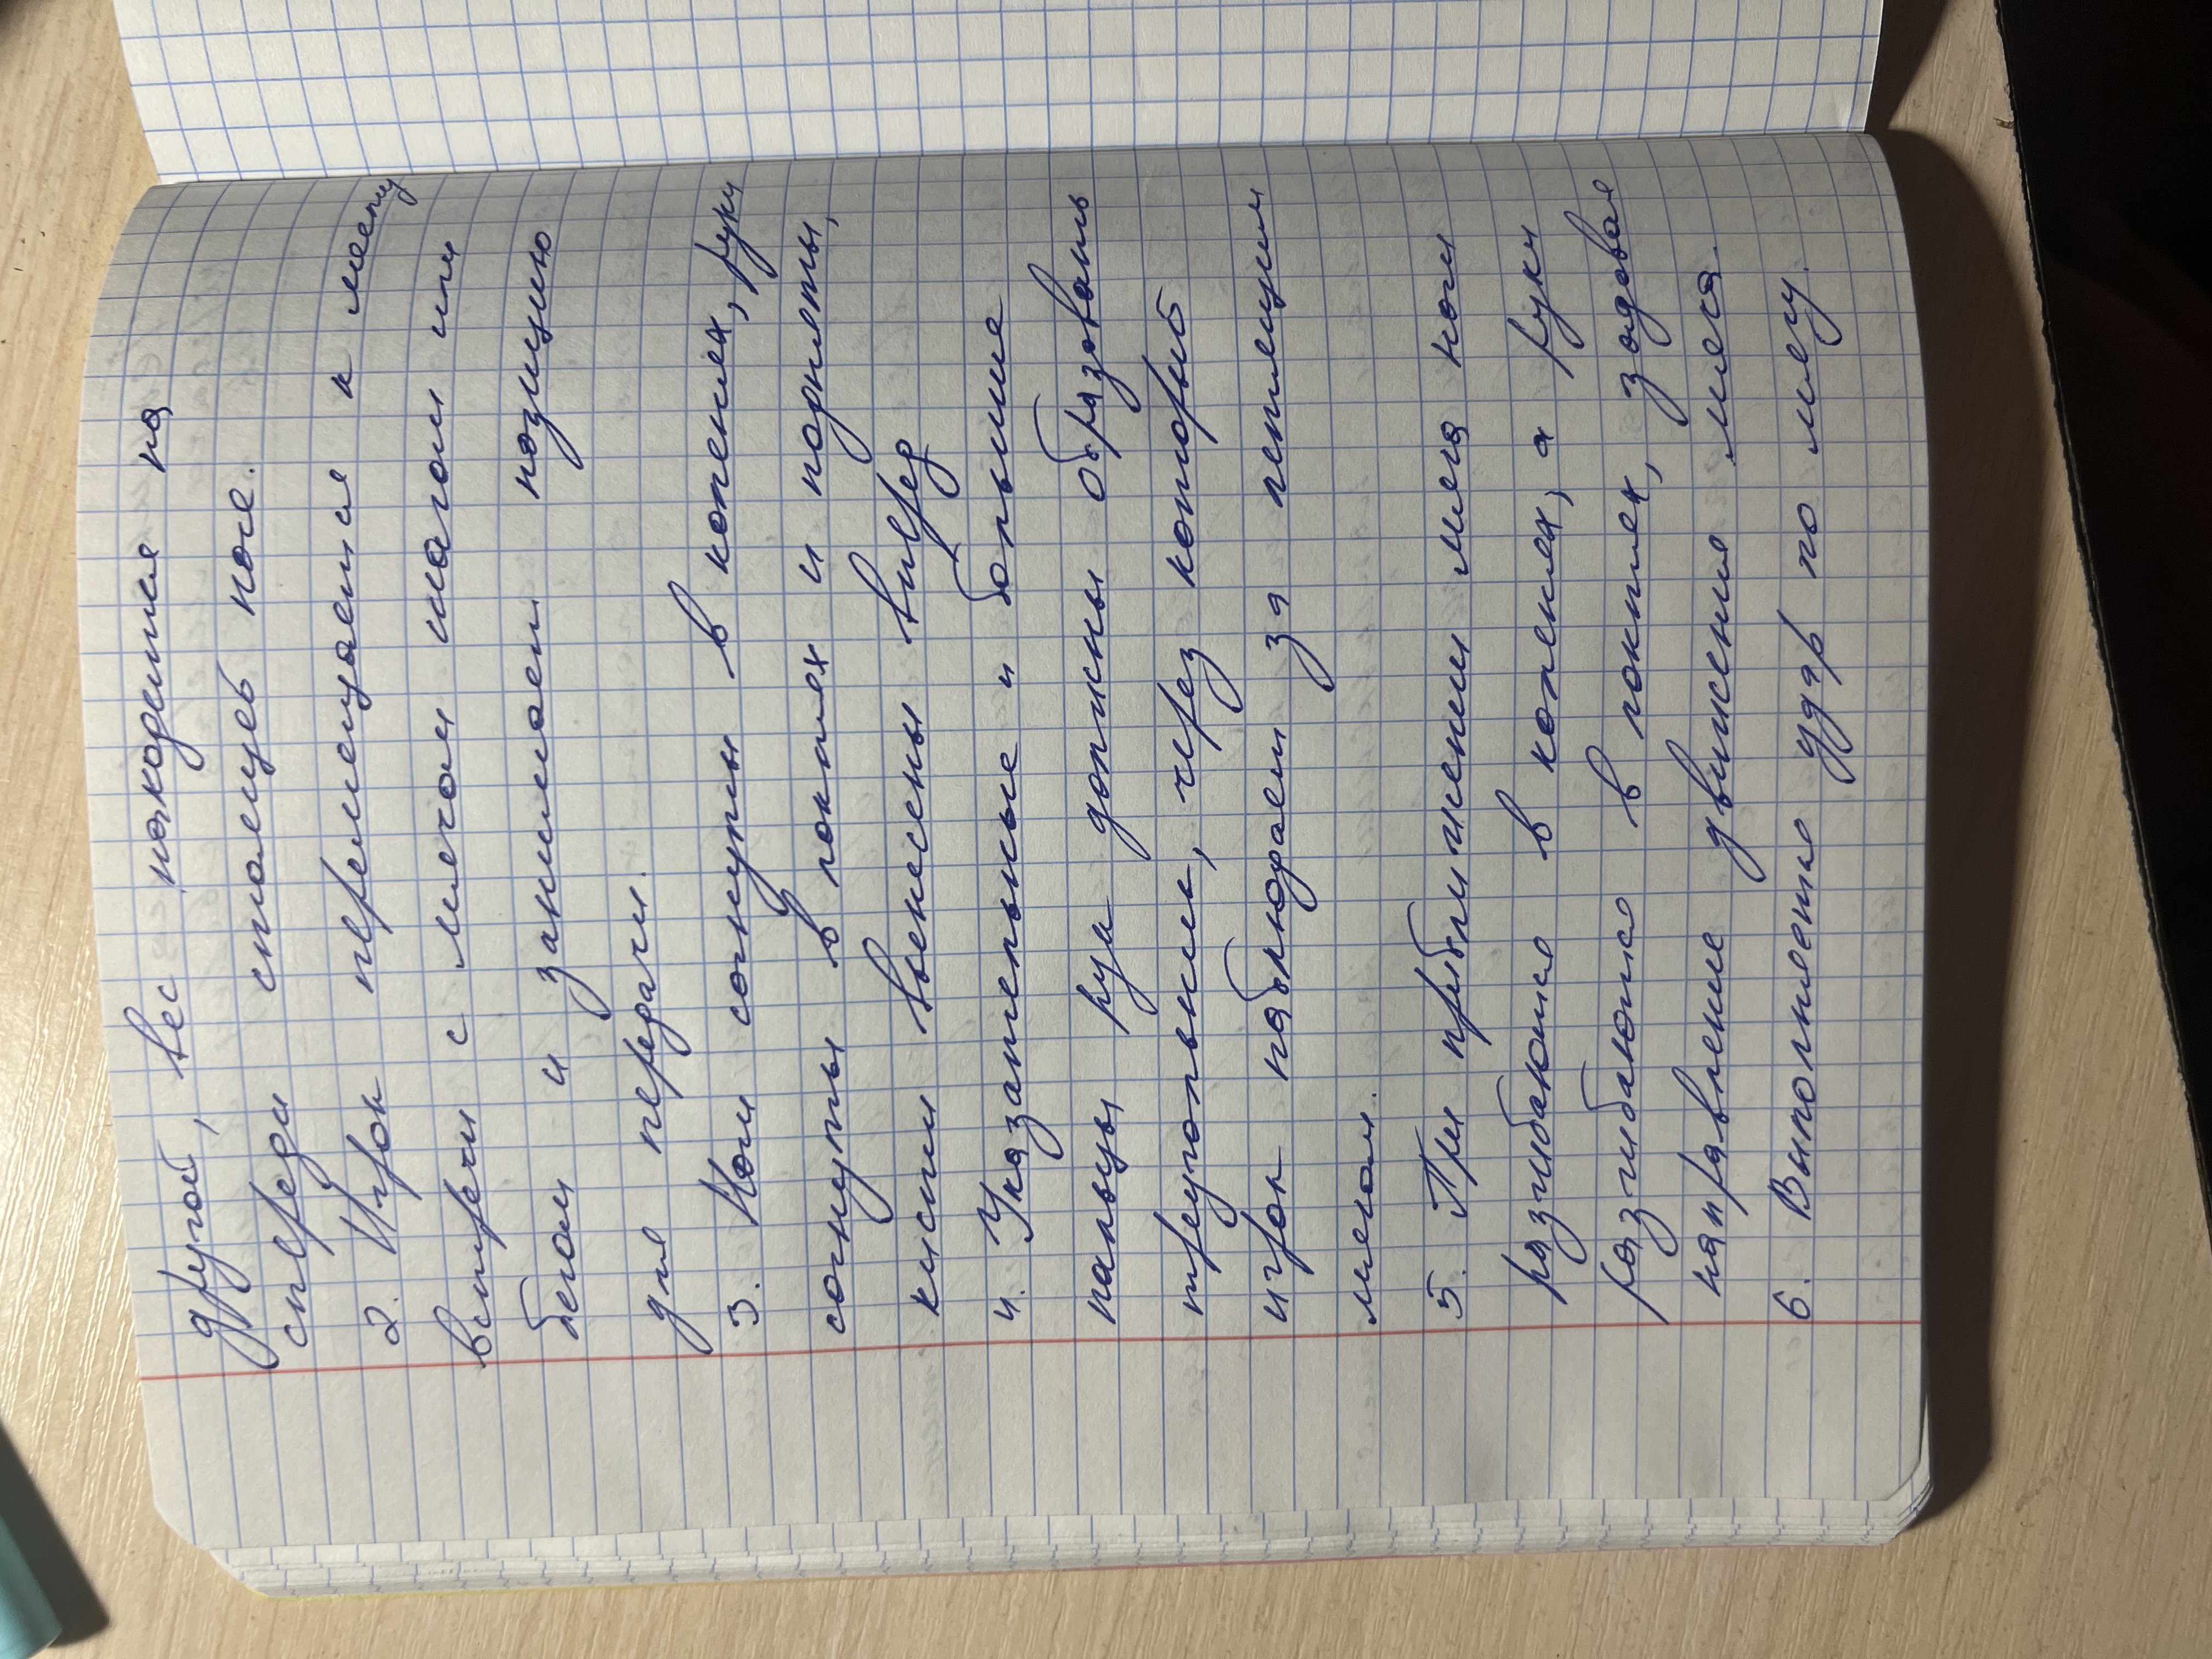 другой, вес находится на
спереди стоящеб ноге.
2. Игрок перемещается к месту
встречи с мячом шагом или
бегом и занимает позицию
для передачи.
3. Ноги согнуты в коленях, руки
согнуты в локтях и подняты,
кисти вынесены вперед
4. Указательные и большие
пальцы рук должны образовать
треугольник, через который
игрок наблюдает за летящим
мячом.
5. При приближении мяча ноги
разгибаются в коленях, а руки
разгибаются в локтях, задавая
направление движения мяча.
6. Выполняется удар по мячу.